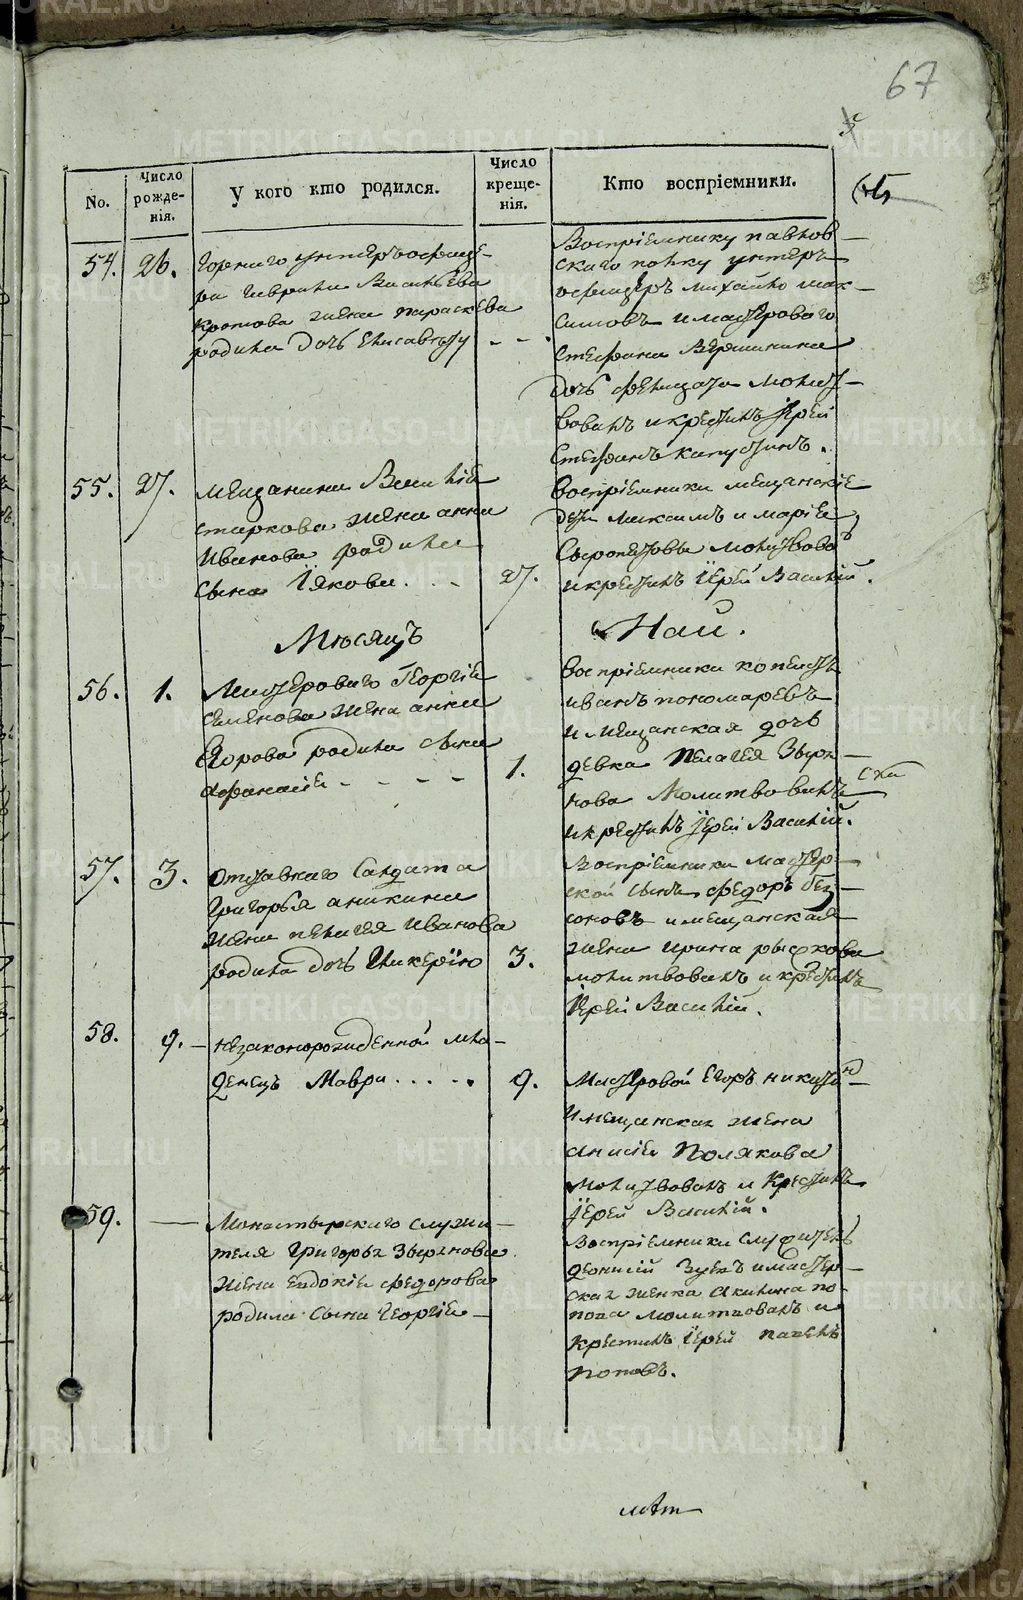 67
No.
Число рожде-нія.
У кого кто родился.
Число креще-нія.
Кто воспріемники.
54. 26.
Горнаго унтеръ офице-
ра Гаврила Василъева
Кротова жена параскева
родила дочь Елисавету - -
Воспріемнику павлов-
скаго полку унтеръ
офицеръ михайло мак-
симовъ и мастероваго
Стефана Вершинина
дочь фелицата молит-
вовалъ и крестилъ Іерей
Стефанъ капустинъ.
55. 27.
мещанина Василіе
старкова жена анна
Иванова родила
сына Іякова. . -
27.
воспріемники мещанскіе
дети максимъ и маріе
молитвово
и крестилъ Іерей Василій.
Мѣсяцъ Маи.
56. 1.
Мастероваго Георгіе
семенова жена анна
Егорова родила сына
афанасіе - - - -
1.
воспріемники копеистъ
иванъ пономаревъ
и мещанская дочь
девка Пелагея Зыря-
нова Молитвовалъ
и крестилъ Іерей Василій.
57. 3.
отставнаго Салдата
Григорья аникина
жена пелагея Иванова
родила дочь Гликерїю
3.
Воспріемники мастер-
ской сынъ федоръ без-
соновъ и мещанская
жена ирина рычкова
молитвовалъ и крестилъ
Іерей Василій.
58. 9.
незаконорожденной мла-
денецъ Мавра . . . . .
9.
Мастеровой Егоръ никитин
и мещанская жена
анисіе Полякова
молитвовалъ и Крестилъ
Іерей Василій.
59. —
Монастырскаго служи-
теля Григорья Зырянова
жена Евдокіе федорова
родила сына Георгіе -
Воспріемники служитель
деонисій Зуевъ и мастер-
ская женка Акилина по-
пова молитвовалъ и
Крестилъ Іерей павелъ
поповъ.
METRIKI.GASO-URAL.RU